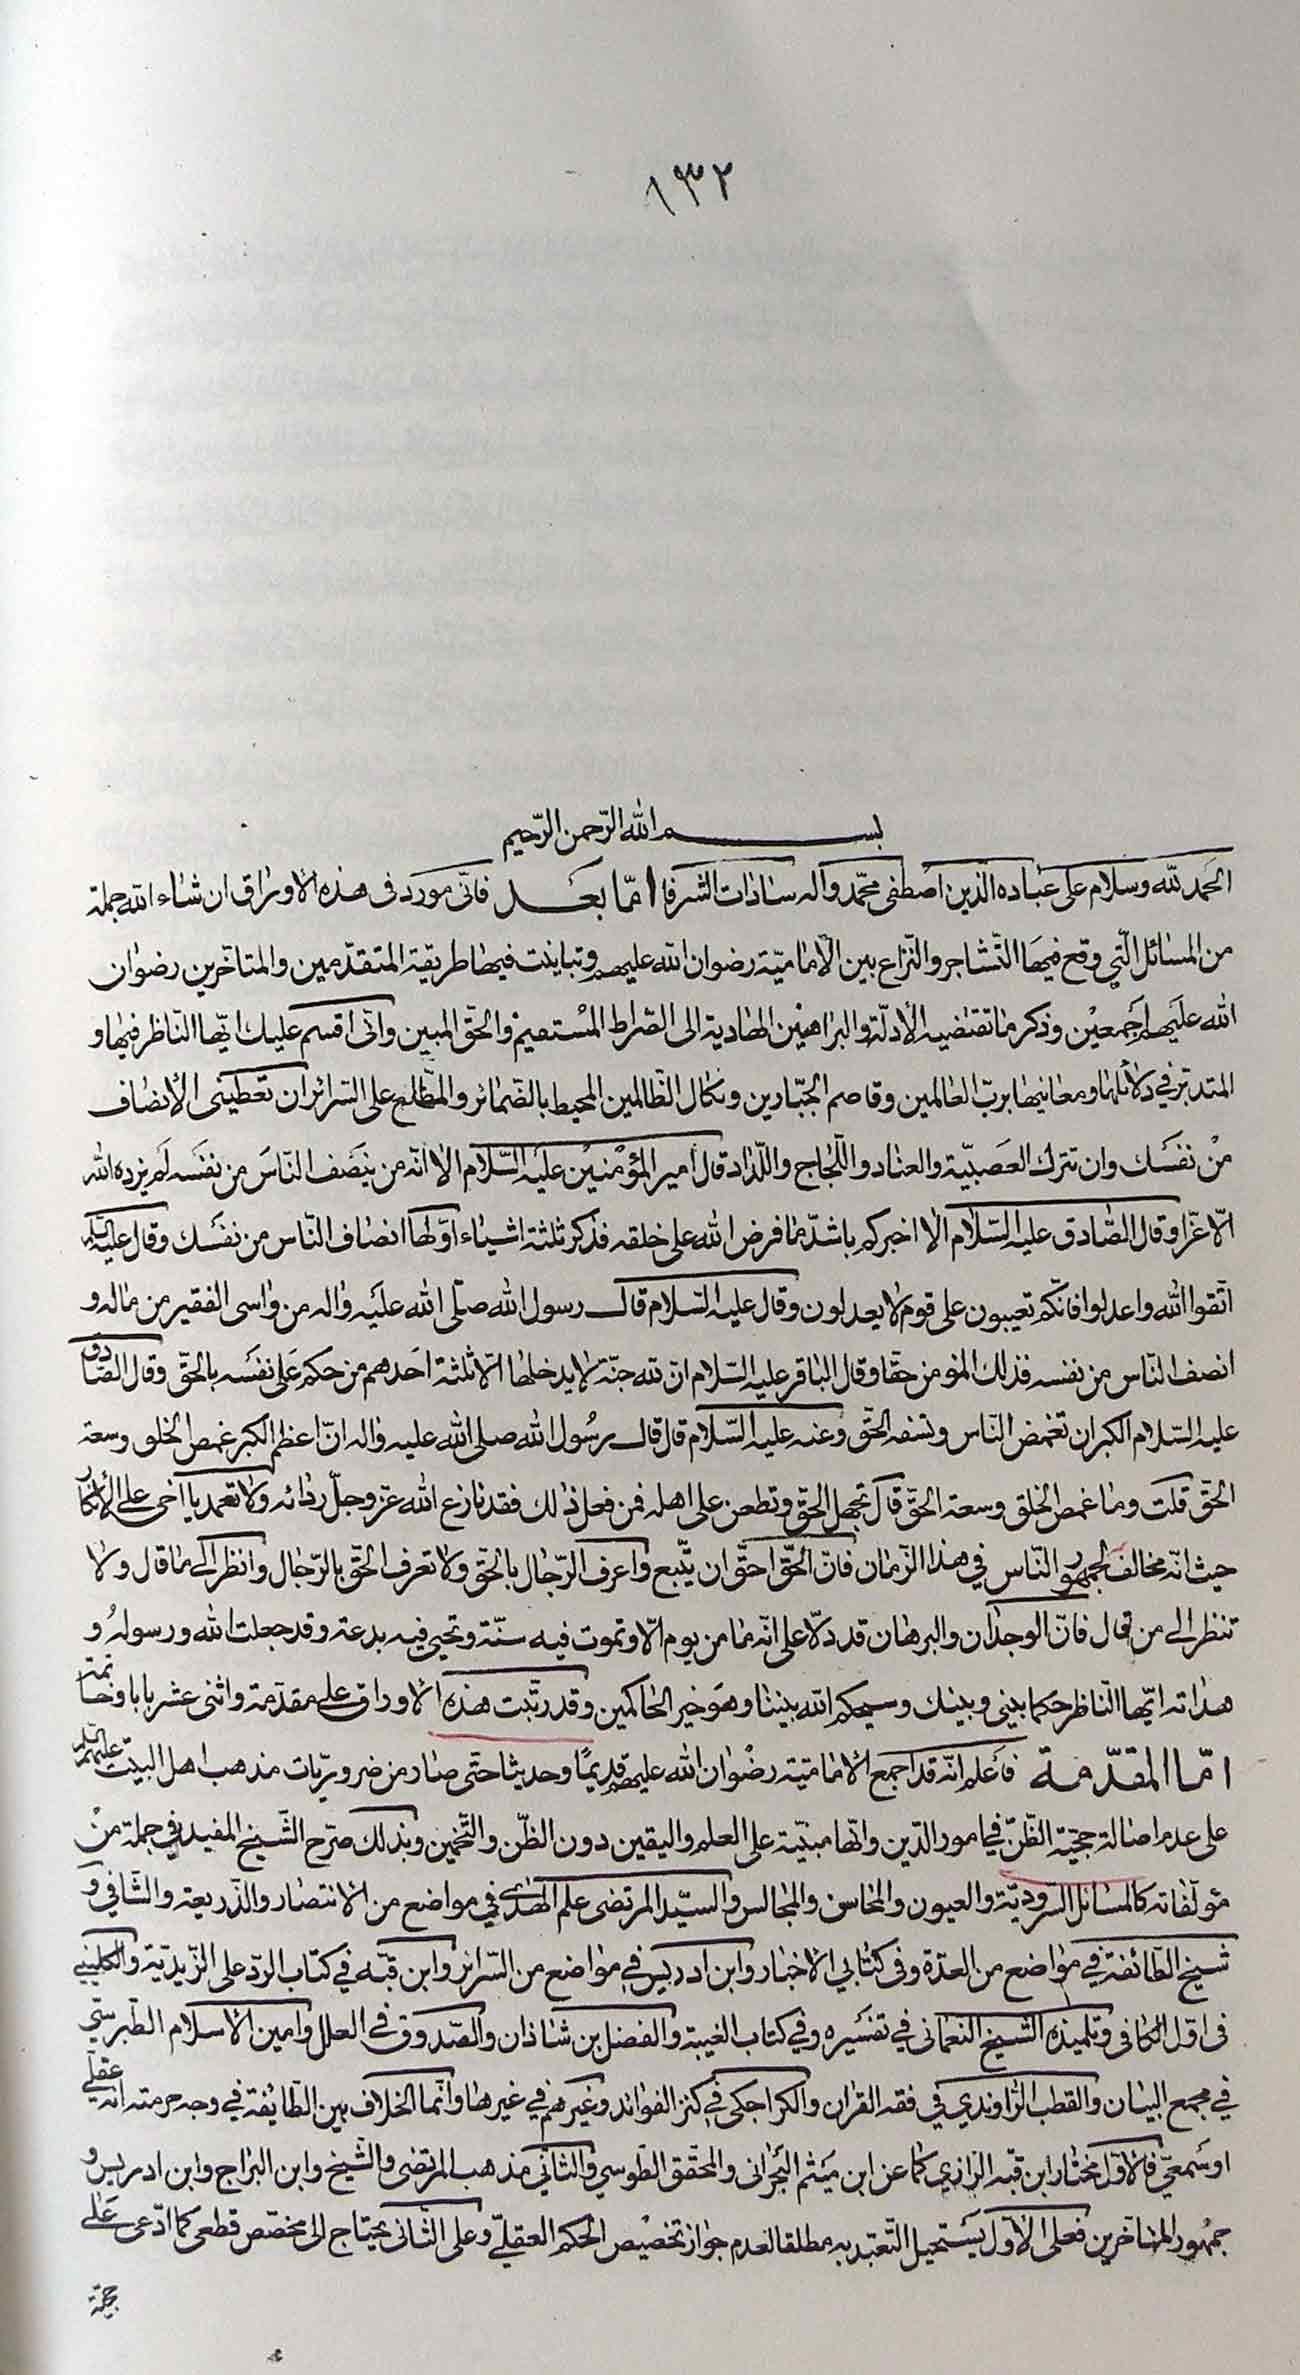 ١٣٢
بسم الله الرّحمن الرّحيم
الحمد لله وسلام على عباده الذين اصطفى محمّد وآله سادات الشرفا امّا بعد فانّى مورد فى هذه الاوراق ان شاء الله جملة
من المسائل الّتي وقع فيها التّشاجر والنّزاع بين الاماميّة رضوان الله عليهم وتباينت فيها طريقة المتقدّمين والمتاخّرين رضوان
الله عليهم اجمعين وذكر ما تقتضيه الادلّة والبراهين الهادية الى الصّراط المستقيم والحقّ المبين وانّى اقسم عليك ايّها النّاظر فيها و
المتدبّر في دلائلها ومعانيها بربّ العالمين وقاصم الجبّارين ونكال الظّالمين المحيط بالضّمائر والمطّلع على السّرائر ان تعطينى الانصاف
من نفسك وان تترك العصبيّة والعناد واللّجاج واللّداد قال امير المؤمنين عليه السّلام الا انّه من ينصف النّاس من نفسه لم يزده الله
الّا عزّا وقال الصّادق عليه السّلام الا اخبركم باشدّ ما فرض الله على خلقه فذكر ثلثة اشياء اوّلها انصاف النّاس من نفسك وقال عليه السّلام
اتّقوا الله واعدلوا فانّكم تعيبون على قوم لا يعدلون وقال عليه السّلام قال رسول الله صلّى الله عليه واله من واسى الفقير من ماله و
انصف النّاس من نفسه فذلك المؤمن حقّا وقال الباقر عليه السّلام انّ لله جنّة لا يدخلها الّا ثلثة احدهم من حكم على نفسه بالحقّ وقال الصّادق
عليه السّلام الكبر ان تغمص النّاس وتسفه الحقّ وعنه عليه السّلام قال قال رسول الله صلى الله عليه واله انّ اعظم الكبر غمص الخلق وسعة
الحقّ قلت وما غمص الخلق وسعة الحقّ قال تجهل الحقّ وتطعن على اهله فمن فعل ذلك فقد نازع الله عزّ وجلّ ردائه ولا تعمد يا اخى على الانكار
حيث انّه مخالف لجمهور النّاس في هذا الزّمان فانّ الحقّ احقّ ان يتّبع واعرف الرّجال بالحقّ ولا تعرف الحقّ بالرّجال وانظر الى ما قال ولا
تنظر الى من قال فانّ الوجدان والبرهان قد دلّا على انّه ما من يوم الّا وتموت فيه سنّة وتحيى فيه بدعة وقد جعلت الله ورسوله و
هداته ايّها النّاظر حكما بينى وبينك وسيحكم الله بيننا وهو خير الحاكمين وقد رتّبت هذه الاوراق على مقدّمة واثنى عشر بابا وخاتمة
امّا المقدّمة فاعلم انّه قد اجمع الاماميّة رضوان الله عليهم قديمًا وحديثا حتّى صار من ضروريّات مذهب اهل البيت عليهم السّلم
على عدم اصالة حجّيّة الظّنّ في امور الدّين وانّها مبنيّة على العلم واليقين دون الظّنّ والتّخمين وبذلك صرّح الشّيخ المفيد في جملة من
مؤلّفاته كالمسائل السّروديّة والعيون والمحاسن والمجالس والسيّد المرتضى علم الهدى في مواضع من الانتصار والذّريعة والشّافي و
شيخ الطّائفة في مواضع من العدّة وفى كتابي الاخبار وابن ادريس في مواضع من السّرائر وابن قبّة في كتاب الردّ على الزّيديّة والكلينى
فى اوّل الكافى وتلميذه الشّيخ النعمانى في تفسيره وفي كتاب الغيبة والفضل بن شاذان والصّدوق في العلل وامين الاسلام الطّبرسيّ
في مجمع البيان والقطب الرّاونديّ في فقه القران والكراجكى في كنز الفوائد وغيرهم في غيرها وانّما الخلاف بين الطّايفة في وجه حرمته انّه عقلىّ
او سمعىّ فالاوّل مختار ابن قبه الرازي كما عن ابن ميثم البحرانى والمحقّق الطّوسي والثّاني مذهب المرتضى والشّيخ وابن البراج وابن ادريس و
جمهور المتاخّرين فعلى الاوّل يستحيل التّعبّد به مطلقا لعدم جواز تخصيص الحكم العقلىّ وعلى الثّانى يحتاج الى مخصّص قطعى كما ادّعى على
حجّية